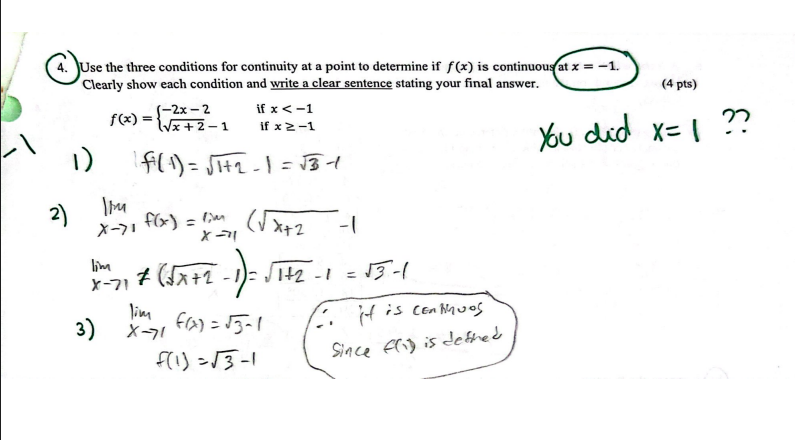 4. Use the three conditions for continuity at a point to determine if f(x) is continuous at x = −1.
Clearly show each condition and write a clear sentence stating your final answer. (4 pts)
f(x) = { −2x − 2 if x < −1
√x + 2 − 1 if x ≥ −1
You did x = 1 ??
-1
1) f(1) = √1+2 - 1 = √3 -1
2) lim x→1 f(x) = lim x→1 (√x+2 -1
lim x→1 ≠ (√x+2 - 1) = √1+2 - 1 = √3 -1
3) lim x→1 f(x) = √3-1
f(1) = √3 -1
∴ it is continuos
Since f(1) is defined